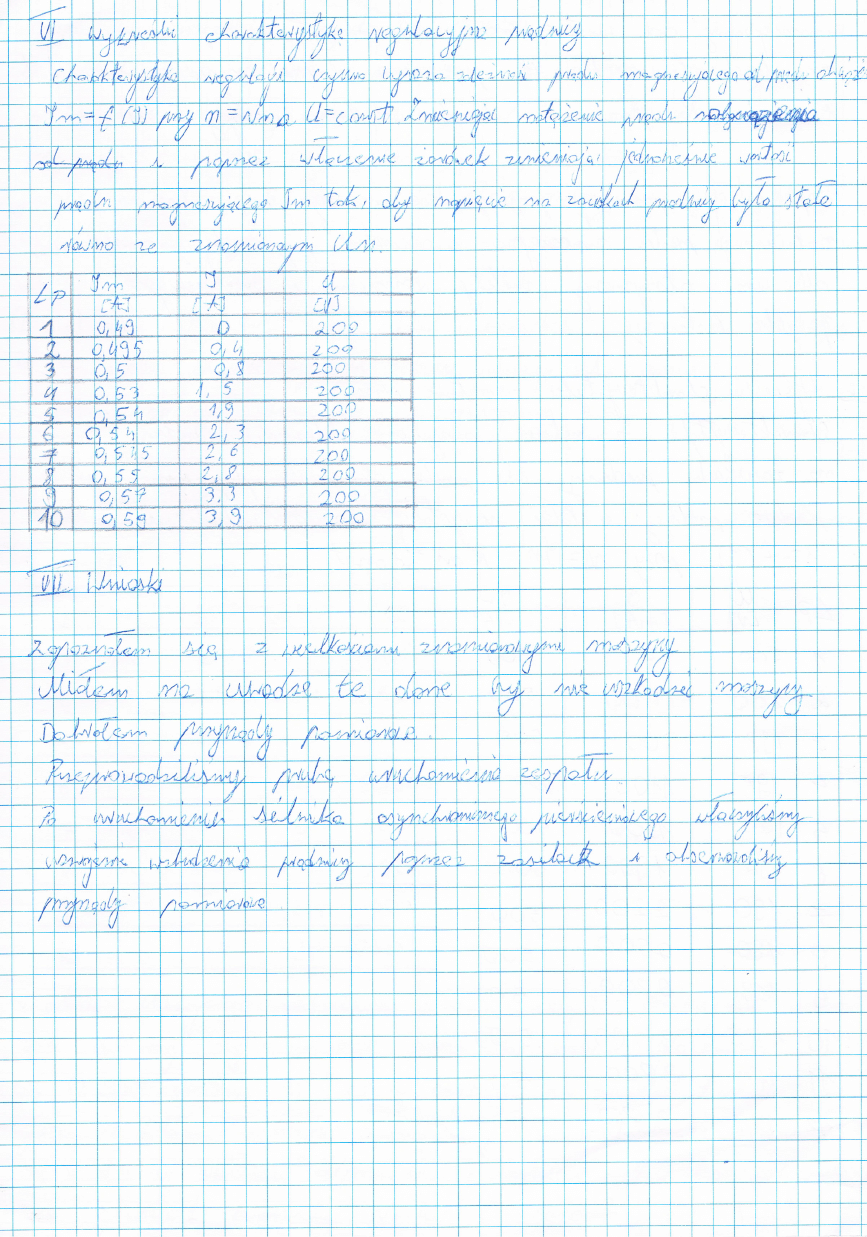 VI Wykreślić charakterystykę regulacyjną prądnicy
Charakterystyka regulacji czynna wyraża zależność prądu magnesującego od prądu
Im = f (I) przy n = Nn a U = const Zmieniając natężenie prądu obciążenia
od prądu i poprzez włączenie żarówek zmieniając jednocześnie wartość
prądu magnesującego Im tak, aby napięcie na zaciskach prądnicy było stałe
równo ze znamionowym Un.
Lp Im I U
[A] [A] [V]
1 0,49 0 200
2 0,495 0,4 200
3 0,5 0,8 200
4 0,53 1,5 200
5 0,54 1,9 200
6 0,54 2,3 200
7 0,545 2,6 200
8 0,55 2,8 200
9 0,57 3,3 200
10 0,59 3,9 200
VII Wnioski
Zapoznałem się z wielkościami znamionowymi maszyny
Miałem na uwadze te dane by nie uszkodzić maszyny.
Dobrałem przyrządy pomiarowe.
Przeprowadziliśmy próbę uruchomienia zespołu
Po uruchomieniu silnika asynchronicznego pierścieniowego włączyliśmy
wzbudzenia prądnicy poprzez zasilacz i obserwowaliśmy
przyrządy pomiarowe.